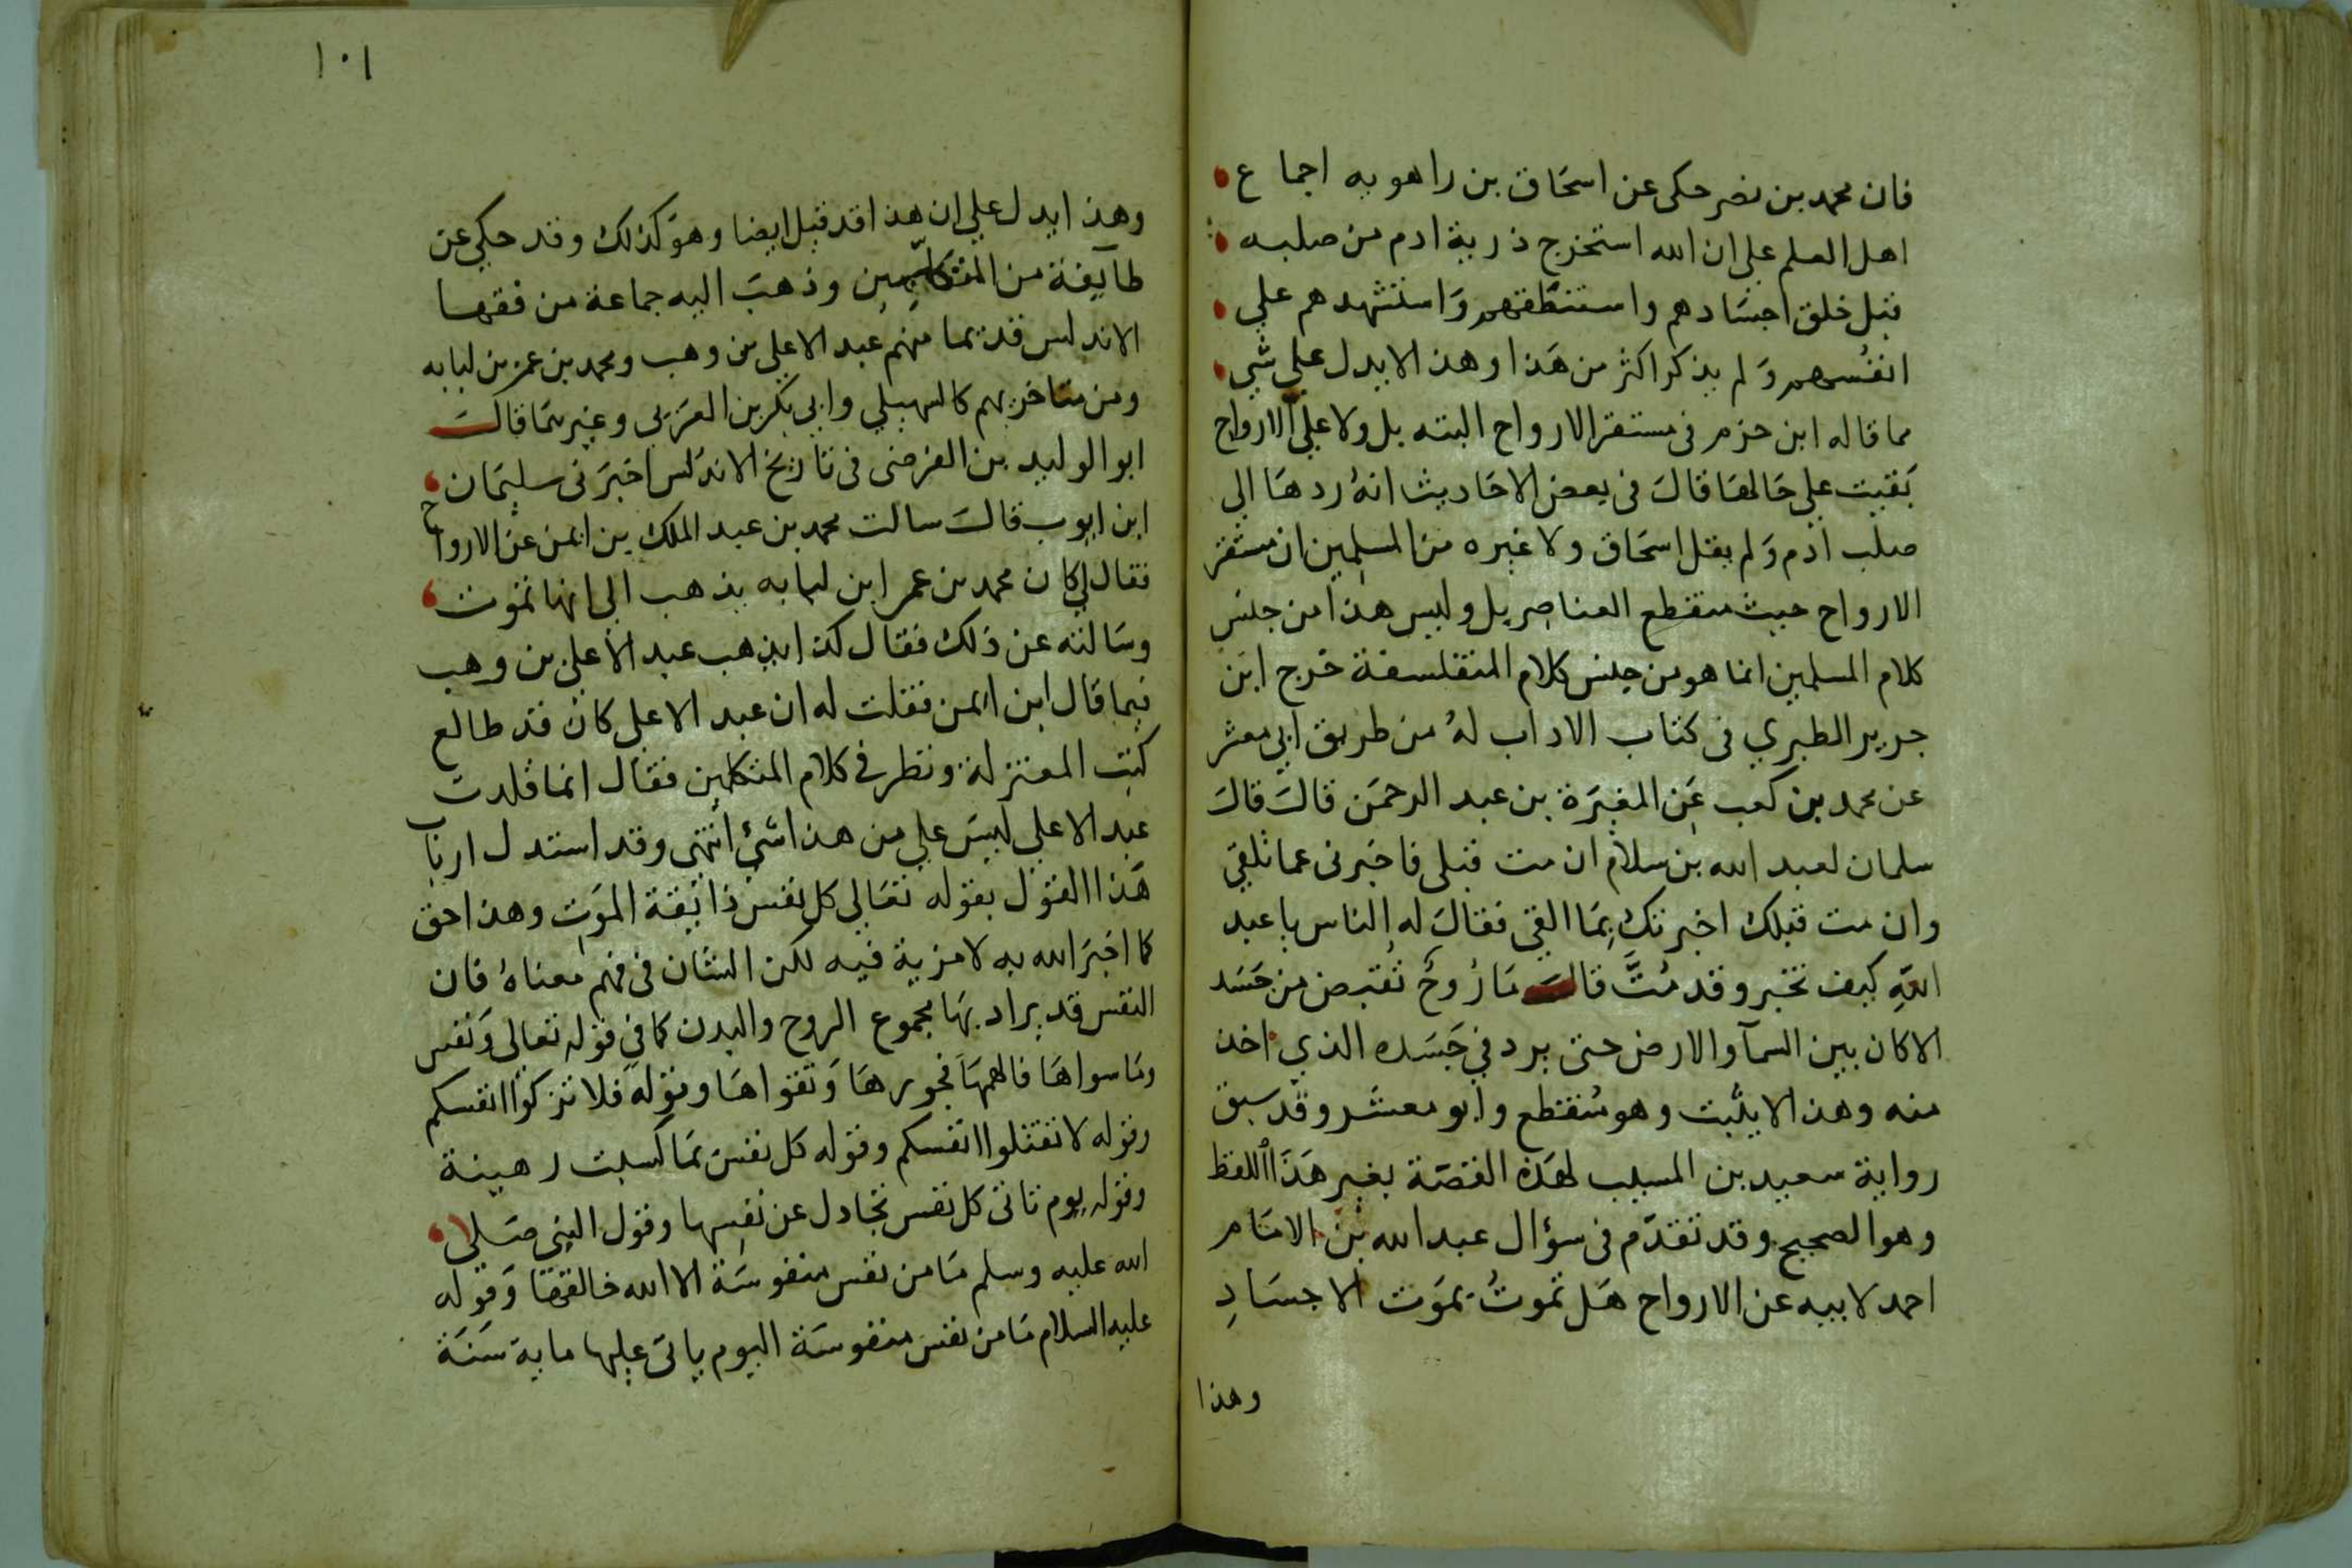 فان محمد بن نصر حكى عن اسحَاق بن راهويه اجماع
اهل العلم على ان الله استخرج ذرية ادم من صلبه
قبل خلق اجسَادهم واستنطقهم وَاستشهدهم علي
انفسُهم وَلم يذكر اكثر من هَذا وهذا لا يدل علي شي
مما قاله ابن حزم فى مستقر الارواح البته بل ولا علي ان الارواح
بَقيت علي حَالهَا قَالَ فى بعض الاحَاديث انهُ ردهَا الي
صلب ادم وَلم يقل اسحَاق ولا غيره من المسلمين ان مستقر
الارواح حيث منقطع العناصر بل وليس هذا من جنس
كلام المسلمين انما هو من جنس كلام المتفلسفة خرج ابن
جرير الطبري فى كتاب الاداب لهُ من طريق ابي معشر
عن محمد بن كعب عَن المغيَرة بن عبد الرحمَن قالَ قالَ
سلمان لعبد الله بن سلام ان مت قبلى فاخبرنى عما تلقي
وان مت قبلك اخبرتك بمَا القى فقالَ له الناس يا عبد
اللهِ كيف تخبر وقد مُتَّ قالَ مَا رُوحُ تُقبض من جَسَد
الا كان بين السمآ والارض حتى يرد في جَسَده الذي اخذ
منه وهذا لا يثبت وهو مُنقطع وابو معشر وقد سبق
رواية سعيد بن المسيب لهَذه القصَة بغير هَذَا اللفظ
وهو الصحيح وقد تقدّم فى سؤال عبد الله بن الامَام
احمد لابيه عن الارواح هَل تموتُ بموَت الاجسَادِ
وهذا
١٠١
وهذا يدل علي ان هذا قد قيل ايضا وهوَ كذلك وقد حكي عن
طآيفة من المتكلّمين وذهبَ اليه جماعة من فقها
الاندلس قديما منهم عبد الاعلي بن وهب ومحمد بن عمر بن لبابه
ومن متاخريهم كالسهيلي وابي بكر بن العَربى وغيرهمَا قالَ
ابو الوليد بن الفرضى فى تاريخ الاندَلس اخبَرنى سليمَان
ابن ايوب قالَ سالت محمد بن عبد الملك بن ايمن عن الارواح
فقال لي كان محمد بن عمر ابن لبابه يذهب الي انها تموَت
وسَالته عن ذلك فقال كذا يذهب عبد الاعلي بن وهب
فيما قال ابن ايمن فقلت له ان عبد الاعلى كان قد طالع
كتب المعتزلة ونظر في كلام المتكلمين فقال انما قلدت
عبد الاعلي ليسَ علي من هذا شي انتهى وقد استدل ارباب
هَذا القول بقوله تعَالي كل نفس ذائِقة الموَت وهذا حق
كما اخبَر الله به لا مزية فيه لكن الشان فى فهم معناهُ فان
النفس قد يراد بهَا مجموع الروح والبدن كما في قوله تعالى وَنفس
ومَا سواهَا فالهمهَا فجورهَا وَتقواهَا وقوله فلا تزكوا انفسكم
وقوله لا تقتلوا انفسكم وقوله كل نفس بمَا كسبت رهينة
وقوله يوم تاتى كل نفس تجَادل عن نفسها وقول النبي صَلى
الله عليه وسلم مَا من نفس منفوسَة الا الله خالقهَا وَقوله
عليه السلام مَا من نفس منفوسَة اليوم ياتى عليها ماية سَنَة